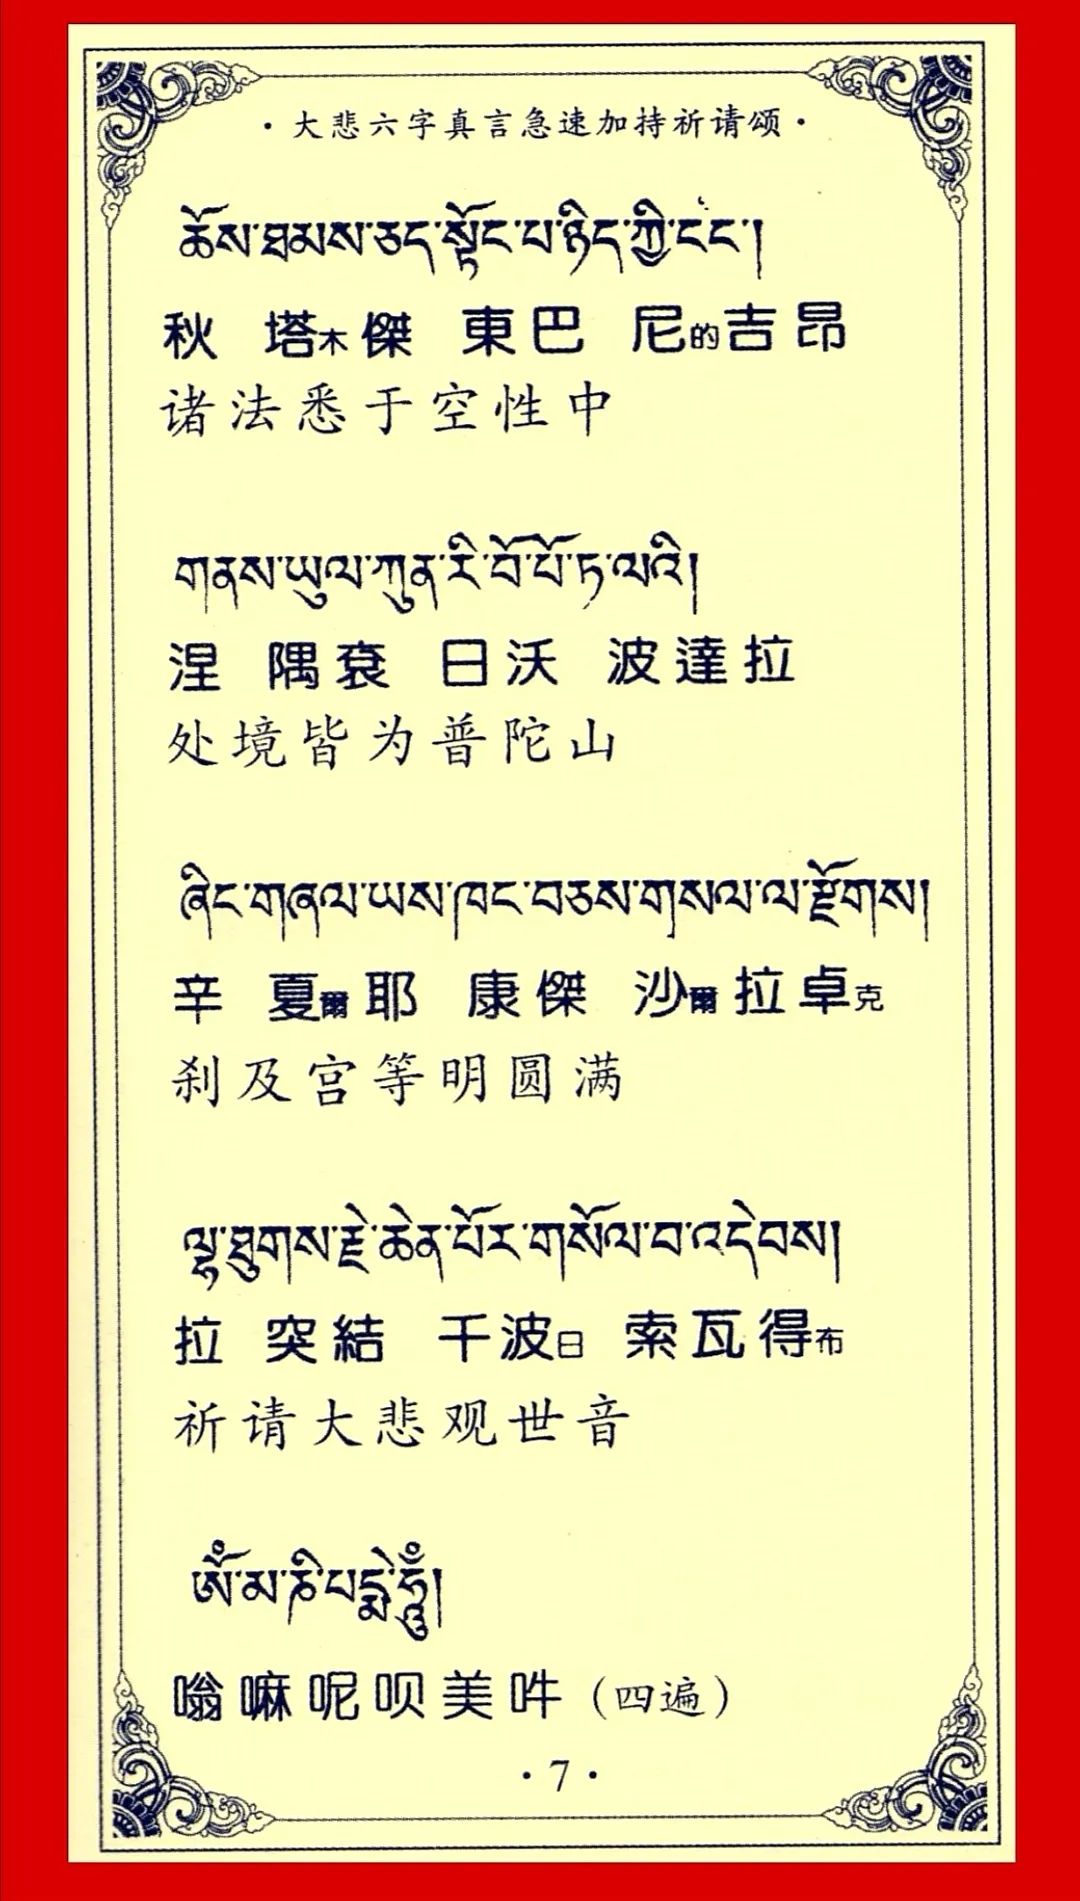 ·大悲六字真言急速加持祈请颂·
ཆོས་ཐམས་ཅད་སྟོང་པ་ཉིད་ཀྱི་ངང་།
秋 塔木傑 東巴 尼的吉昂
诸法悉于空性中
གནས་ཡུལ་ཀུན་རི་བོ་པོ་ཏ་ལའི།
涅 隅衮 日沃 波達拉
处境皆为普陀山
ཞིང་གཞལ་ཡས་ཁང་བཅས་གསལ་ལ་རྫོགས།
辛 夏爾耶 康傑 沙爾拉卓克
刹及宫等明圆满
ལྷ་ཐུགས་རྗེ་ཆེན་པོར་གསོལ་བ་འདེབས།
拉 突結 千波日 索瓦得布
祈请大悲观世音
ཨོཾ་མ་ཎི་པདྨེ་ཧཱུྃ།
嗡嘛呢呗美吽（四遍）
·7·